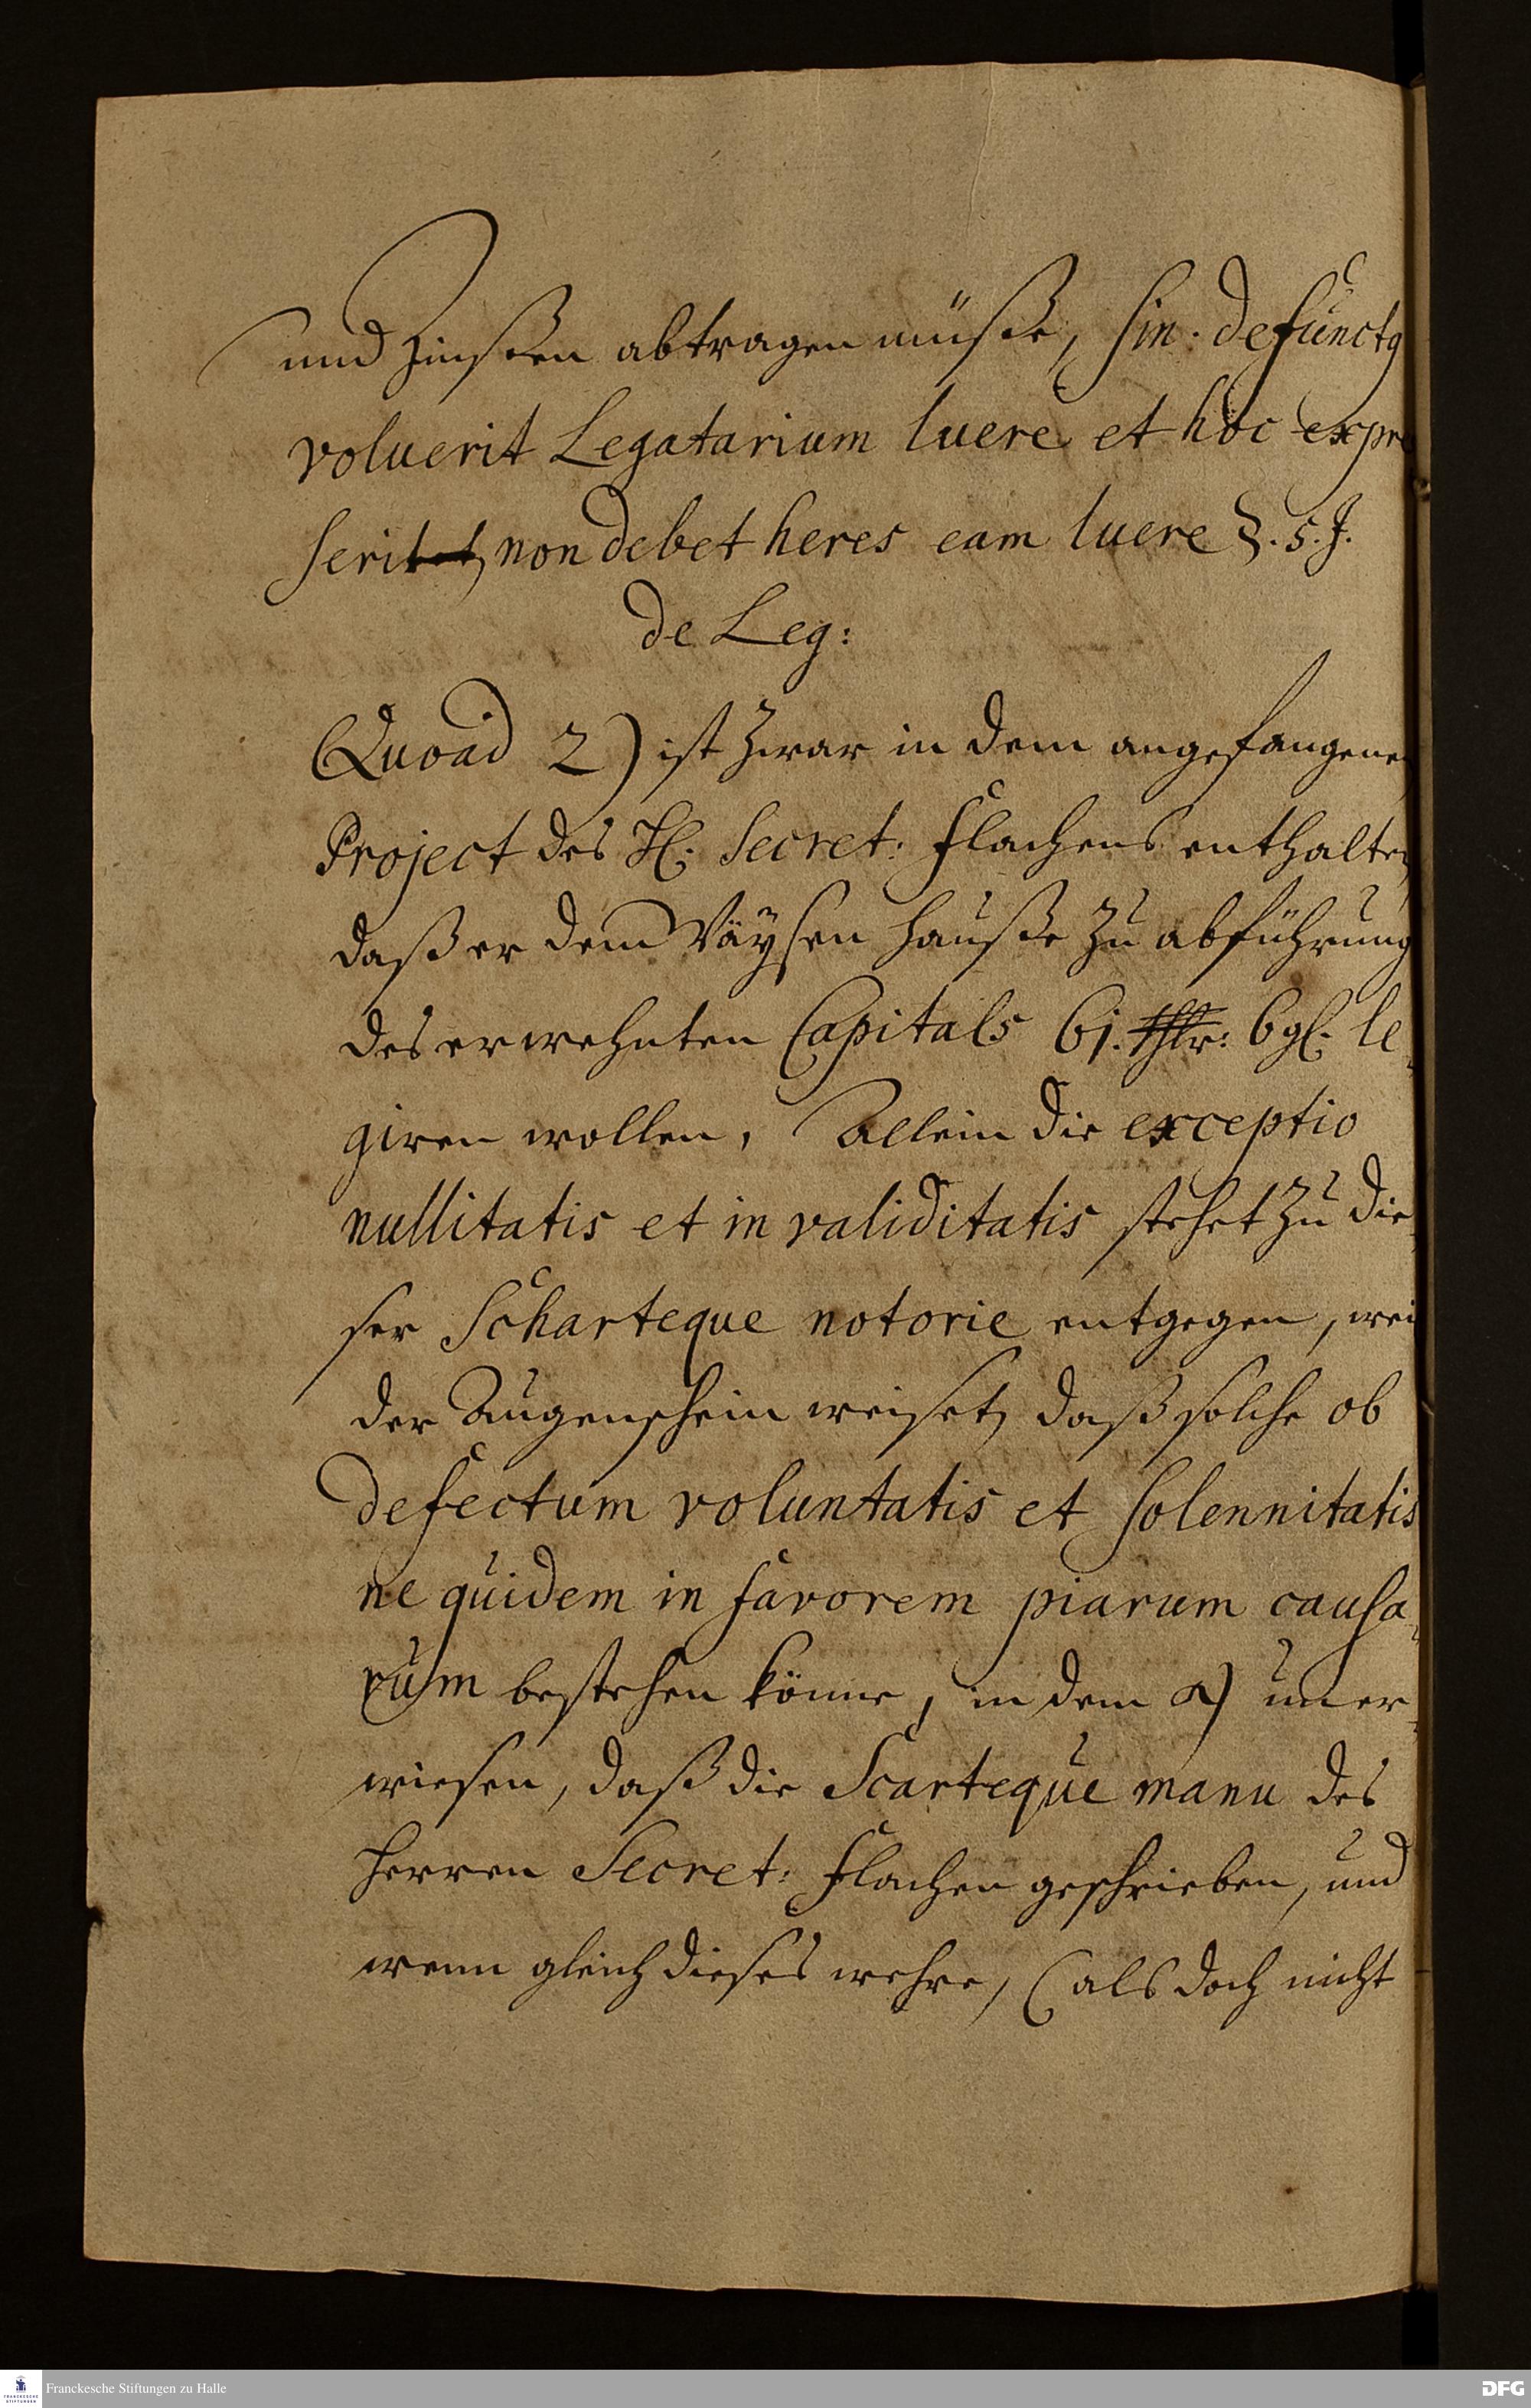 und Zinßen abtragen müsse, sin. defunctq
voluerit Legatarium luere et hoc expre
serit, non debet heres eam luere §. 5. J.
de Leg:
Quoad 2) ist zwar in dem angefangenen
Project des H. Secret: Flachens enthalten
daß er dem Wäysen Hauße zu abführung
des erwehnten Capitals 61. thlr: 6 gl. le-
giren wollen, Allein die exceptio
nullitatis et in validitatis stehet zu die-
ser Scharteque notorie entgegen, weil
der Augenschein weiset, daß solche ob
defectum voluntatis et solennitatis
ne quidem in favorem piarum causa-
rum bestehen könne, in dem a) uner-
wiesen, daß die Scarteque manu des
Herren Secret: Flachen geschrieben, und
wenn gleich dieses wehre, (als doch nicht
Franckesche Stiftungen zu Halle
FRANCKESCHE
STIFTUNGEN
DFG